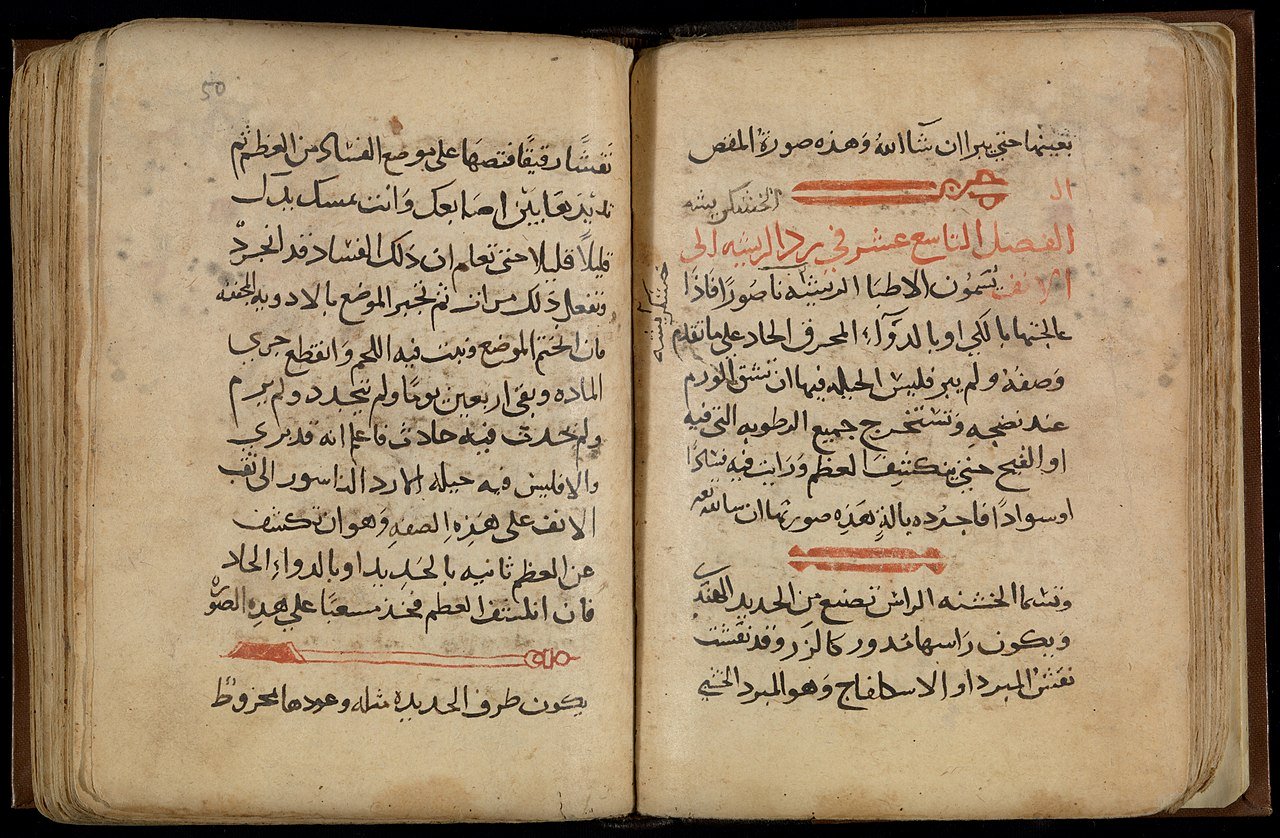 بعينها حتي يبرا ان شا الله وهذه صورة المقص
ال
الفصل التاسع عشر في رد الريشه الى
الانف يسمون الاطبا الريشه ناصورا فاذا
عالجتها بالكي او بالدوآء المحرق الحاد على ما تقدم
وصفه ولم يبر فليس الحيله فيها ان تشق الورم
عند نضجه وتستخرج جميع الرطوبه التي فيه
او القيح حتي ينكشف العظم ورايت فيه فسادا
او سوادا فاجرده بالة هذه صورتها ان
وتسما الخشنه الراس تصنع من الحديد الهندي
ويكون راسها مدور كالزر وقد نقشت
نقش المبرد او الاسكلفاج وهو المبرد الخشبي
50
نقشا رقيقا فتضعها على موضع الفساد من العظم ثم
تديرها بين اصابعك وانت تمسك يدك
قليلا قليلا حتي تعلم ان ذلك الفساد قد انجرد
وتفعل ذلك مرات ثم تجبر الموضع بالادويه المجففه
فان التحم الموضع ونبت فيه اللحم وانقطع جري
الماده وبقي اربعين يوما ولم يتجدد ولم يرم
ولم يحدث فيه حادث فاعلم انه قد بري
والا فليس فيه حيله الا رد الناسور الى ثقب
الانف على هذه الصفه وهو ان تكشف
عن العظم ثانيه بالحديد او بالدواء الحاد
فان انكشف العظم فخذ مسعبا علي هذه الصوره
يكون طرف الحديده مثله وعودها مخروط